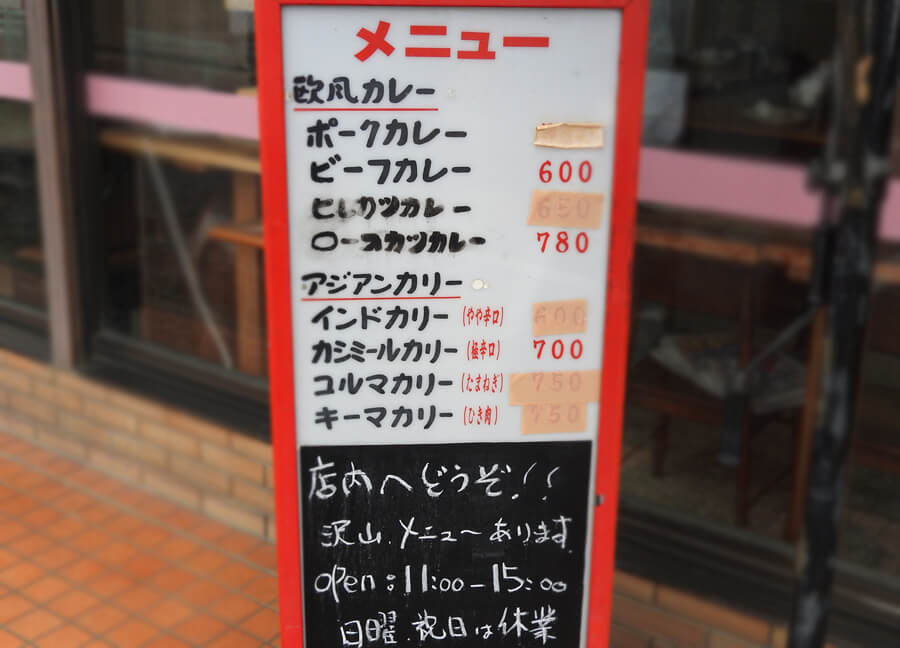 メニュー
欧風カレー
ポークカレー
ビーフカレー 600
ヒレカツカレー 650
ロースカツカレー 780
アジアンカリー
インドカリー (やや辛口) 600
カシミールカリー (極辛口) 700
コルマカリー (たまねぎ) 750
キーマカリー (ひき肉) 750
店内へどうぞ!!
沢山メニューあります
open:11:00-15:00
日曜.祝日は休業